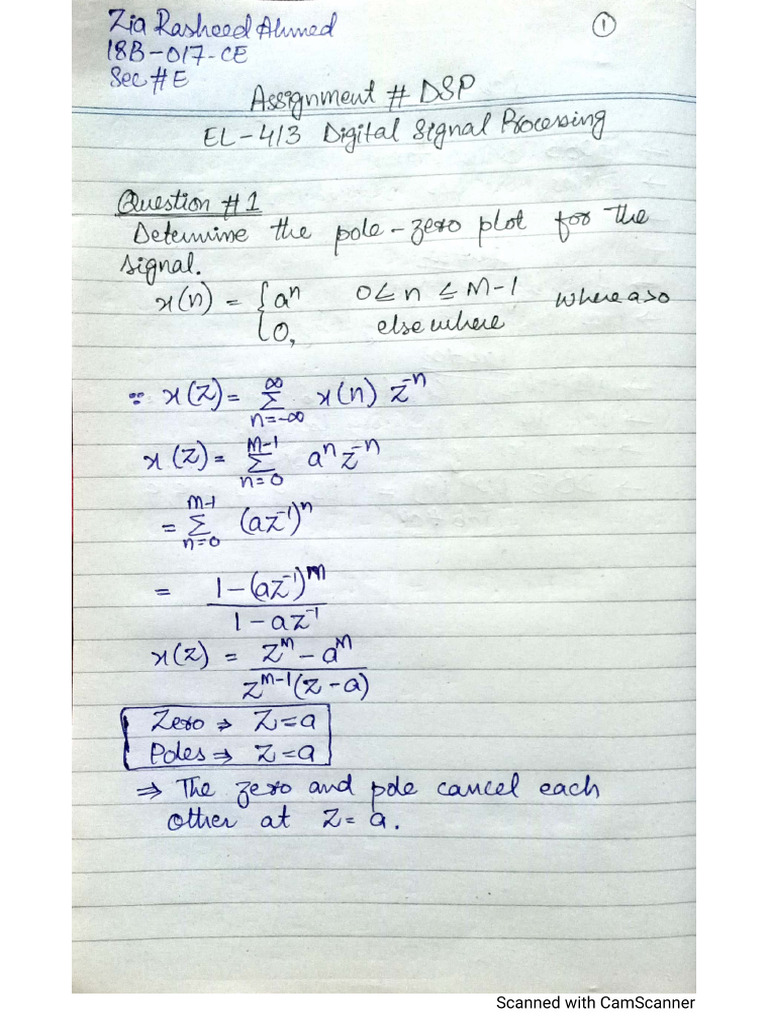 Zia Rasheed Ahmed
①
18B-017-CE
Sec # E
Assignment # DSP
EL-413 Digital Signal Processing
Question #1
Determine the pole-zero plot for the
signal.
x(n) = { aⁿ 0 ≤ n ≤ M-1 where a>0
{ 0, elsewhere
∵ x(z) = Σ_{n=-∞}^{∞} x(n) z⁻ⁿ
x(z) = Σ_{n=0}^{M-1} aⁿ z⁻ⁿ
= Σ_{n=0}^{M-1} (az⁻¹)ⁿ
= (1-(az⁻¹)^M) / (1-az⁻¹)
x(z) = (z^M - a^M) / (z^{M-1}(z-a))
Zero ⇒ Z=a
Poles ⇒ Z=a
⇒ The zero and pole cancel each
other at Z=a.
Scanned with CamScanner